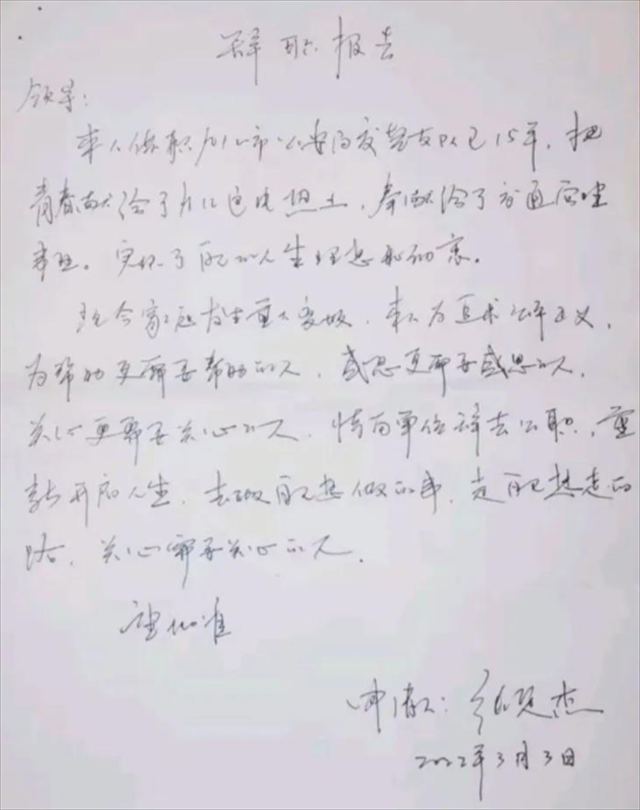 辞职报告
领导:
本人供职九江市公安局交警支队已15年,把
青春献给了九江这片热土,奉献给了交通管理
事业。实现了自己的人生理想和初衷。
现今家庭发生重大变故,本人为追求公平正义,
为帮助更需要帮助的人,感恩更需要感恩的人,
关心更需要关心的人,特向单位辞去公职,重
新开启人生,去做自己想做的事,走自己想走的
路,关心需要关心的人。
望批准
申请人:
2022年3月3日